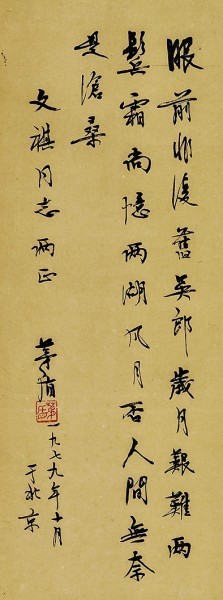 眼前非復舊吳郎歲月艱難兩
鬢霜尚憶西湖風月否人間無奈
是滄桑
文祺同志兩正
茅盾
一九七九年十月
于北京